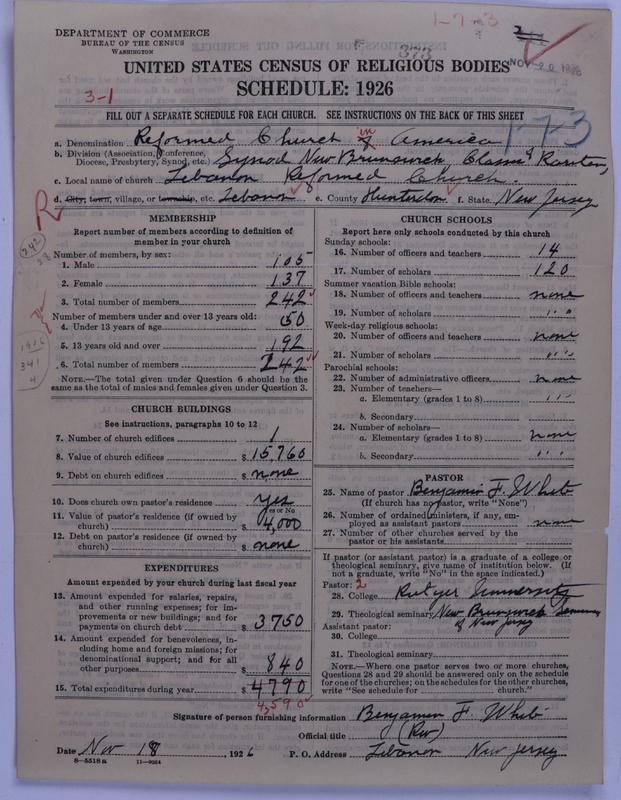 1-7-3
DEPARTMENT OF COMMERCE
BUREAU OF THE CENSUS
WASHINGTON
373
NOV 20 1926
UNITED STATES CENSUS OF RELIGIOUS BODIES
SCHEDULE: 1926
3-1
FILL OUT A SEPARATE SCHEDULE FOR EACH CHURCH. SEE INSTRUCTIONS ON THE BACK OF THIS SHEET
1-7-3
a. Denomination Reformed Church in America
b. Division (Association, Conference, Diocese, Presbytery, Synod, etc.) Synod New Brunswick, Classis Raritan,
c. Local name of church Lebanon Reformed Church
d. City, town, village, or township, etc. Lebanon e. County Hunterdon f. State New Jersey
R
MEMBERSHIP
Report number of members according to definition of member in your church
Number of members, by sex:
1. Male 105
2. Female 137
3. Total number of members 242
Number of members under and over 13 years old:
4. Under 13 years of age 50
5. 13 years old and over 192
6. Total number of members 242
NOTE.—The total given under Question 6 should be the same as the total of males and females given under Question 3.
242
1916
341
4
CHURCH BUILDINGS
See instructions, paragraphs 10 to 12
7. Number of church edifices 1
8. Value of church edifices $ 15,760
9. Debt on church edifices $ none
10. Does church own pastor's residence yes
Yes or No
11. Value of pastor's residence (if owned by church) $ 4,000
12. Debt on pastor's residence (if owned by church) $ none
EXPENDITURES
Amount expended by your church during last fiscal year
13. Amount expended for salaries, repairs, and other running expenses; for improvements or new buildings; and for payments on church debt $ 3750
14. Amount expended for benevolences, including home and foreign missions; for denominational support; and for all other purposes $ 840
15. Total expenditures during year $ 4790
4,590
CHURCH SCHOOLS
Report here only schools conducted by this church
Sunday schools:
16. Number of officers and teachers 14
17. Number of scholars 120
Summer vacation Bible schools:
18. Number of officers and teachers none
19. Number of scholars " "
Week-day religious schools:
20. Number of officers and teachers none
21. Number of scholars " "
Parochial schools:
22. Number of administrative officers none
23. Number of teachers—
a. Elementary (grades 1 to 8) " "
b. Secondary
24. Number of scholars—
a. Elementary (grades 1 to 8) none
b. Secondary " "
PASTOR
25. Name of pastor Benjamin F. White
(If church has no pastor, write "None")
26. Number of ordained ministers, if any, employed as assistant pastors none
27. Number of other churches served by the pastor or his assistants
If pastor (or assistant pastor) is a graduate of a college or theological seminary, give name of institution below. (If not a graduate, write "No" in the space indicated.)
Pastor: 2
28. College Rutger University
29. Theological seminary New Brunswick Seminary
of New Jersey
Assistant pastor:
30. College
31. Theological seminary
NOTE.—Where one pastor serves two or more churches, Questions 28 and 29 should be answered only on the schedule for one of the churches; on the schedules for the other churches, write "See schedule for church."
Signature of person furnishing information Benjamin F. White
Official title (Rev)
Date Nov 18, 1926 P. O. Address Lebanon New Jersey
8-5518a 11-9084